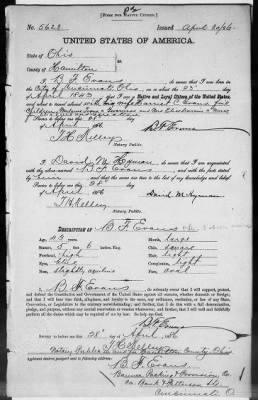 [FORM FOR NATIVE CITIZEN.]
No. 5628
Issued April 30/86
UNITED STATES OF AMERICA.
State of Ohio
County of Hamilton
I, B. F. Evans, do swear that I was born in the
City of Cincinnati, Ohio, on the 23d
of April 1843; that I am a Native and Loyal Citizen of the United States,
and about to travel abroad with my wife Harriet C. Evans, four
Sworn to before me this 28
of April, 1886
B. F. Evans
T. H. Kelley
Notary Public.
I, David M. Hyman, do swear that I am acquainted
with the above-named B. F. Evans, and with the
facts above stated by him, and that the same are true to the best of my knowledge and belief.
Sworn to before me this 28
of April, 1886
David M. Hyman
T. H. Kelley
Notary Public.
DESCRIPTION OF B. F. Evans
Age, 43 years.
Stature, 5 feet 6 inches, Eng.
Forehead, high
Eyes,
Nose, slightly aquiline
Mouth, large
Chin,
Hair, light
Complexion, light
Face, oval
I, B. F. Evans, do solemnly swear that I will support,
protect, and defend the Constitution and Government of the United States against all enemies, whether domestic or foreign;
and that I will bear true faith, allegiance, and loyalty to the same, any ordinance, resolution, or law of any State,
Convention, or Legislature to the contrary notwithstanding; and further, that I do this with a full determination,
pledge, and purpose, without any mental reservation or evasion whatsoever; and, further, that I will well and faithfully
perform all the duties which may be required of me by law: So help me God.
B. F. Evans
Sworn to before me this 28 day of April, 1886
T. H. Kelley
Notary Public in and for Hamilton County, Ohio
Applicant desires passport sent to following address:
B. F. Evans.
Packing & Provision Co.
Cincinnati O.